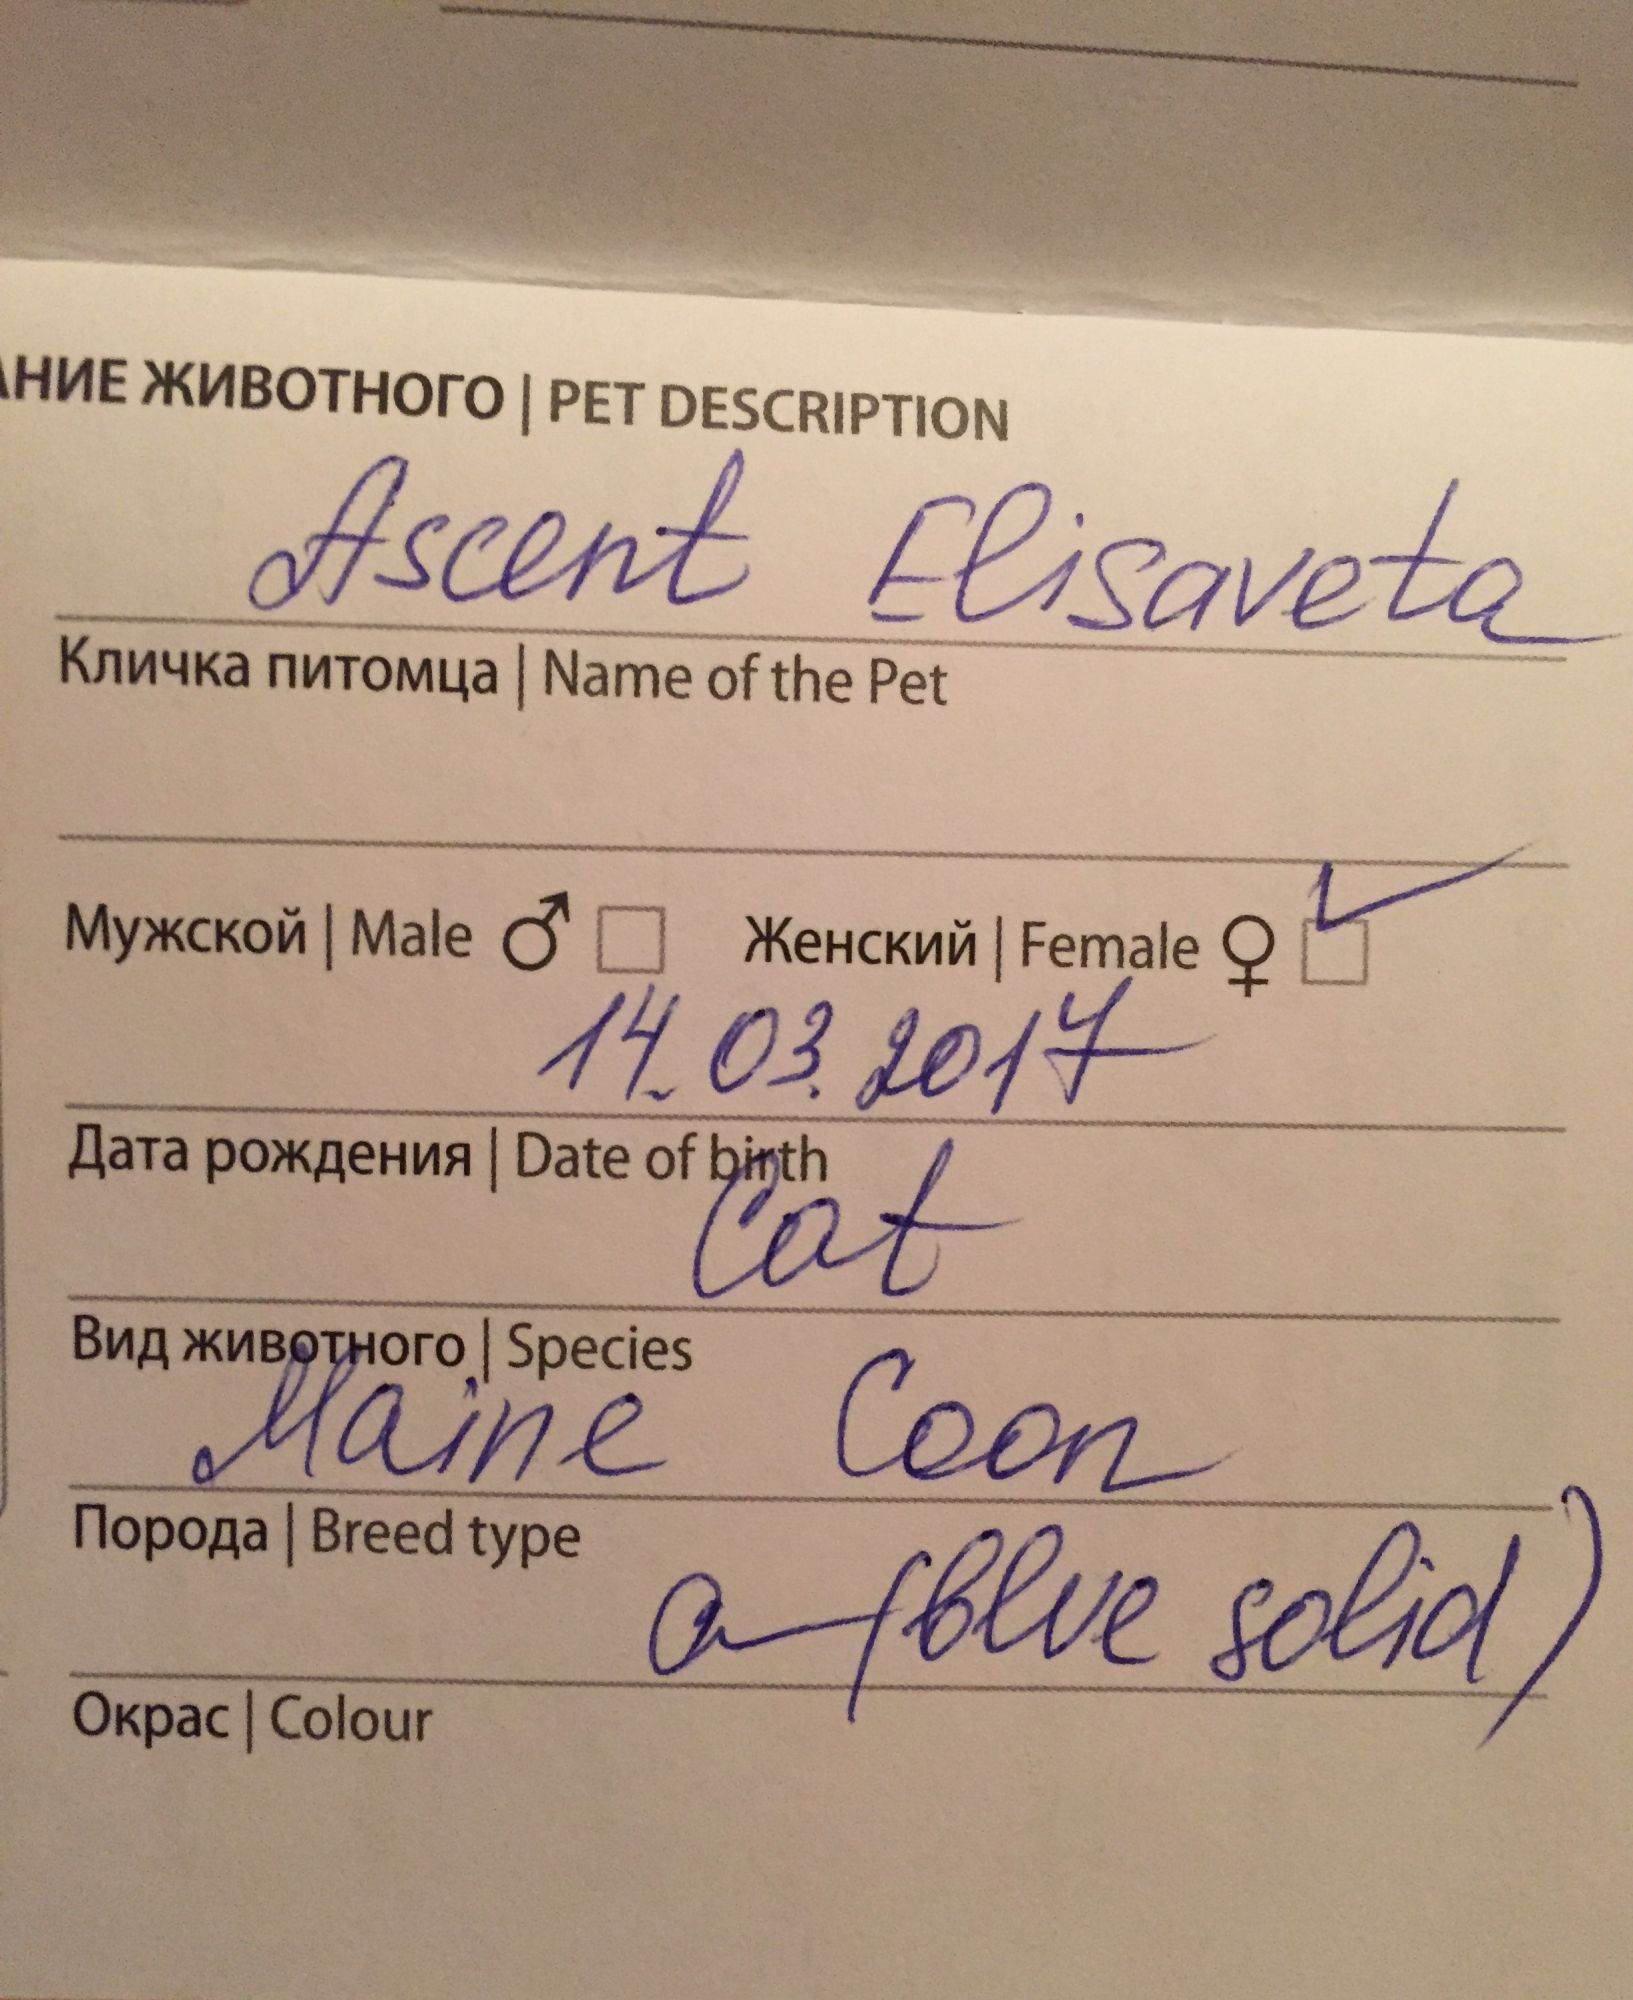 АНИЕ ЖИВОТНОГО | PET DESCRIPTION
Ascent Elisaveta
Кличка питомца | Name of the Pet
Мужской | Male ♂ ☐ Женский | Female ♀ ☑
14.03.2017
Дата рождения | Date of birth
Cat
Вид животного | Species
Maine Coon
Порода | Breed type
a (blue solid)
Окрас | Colour